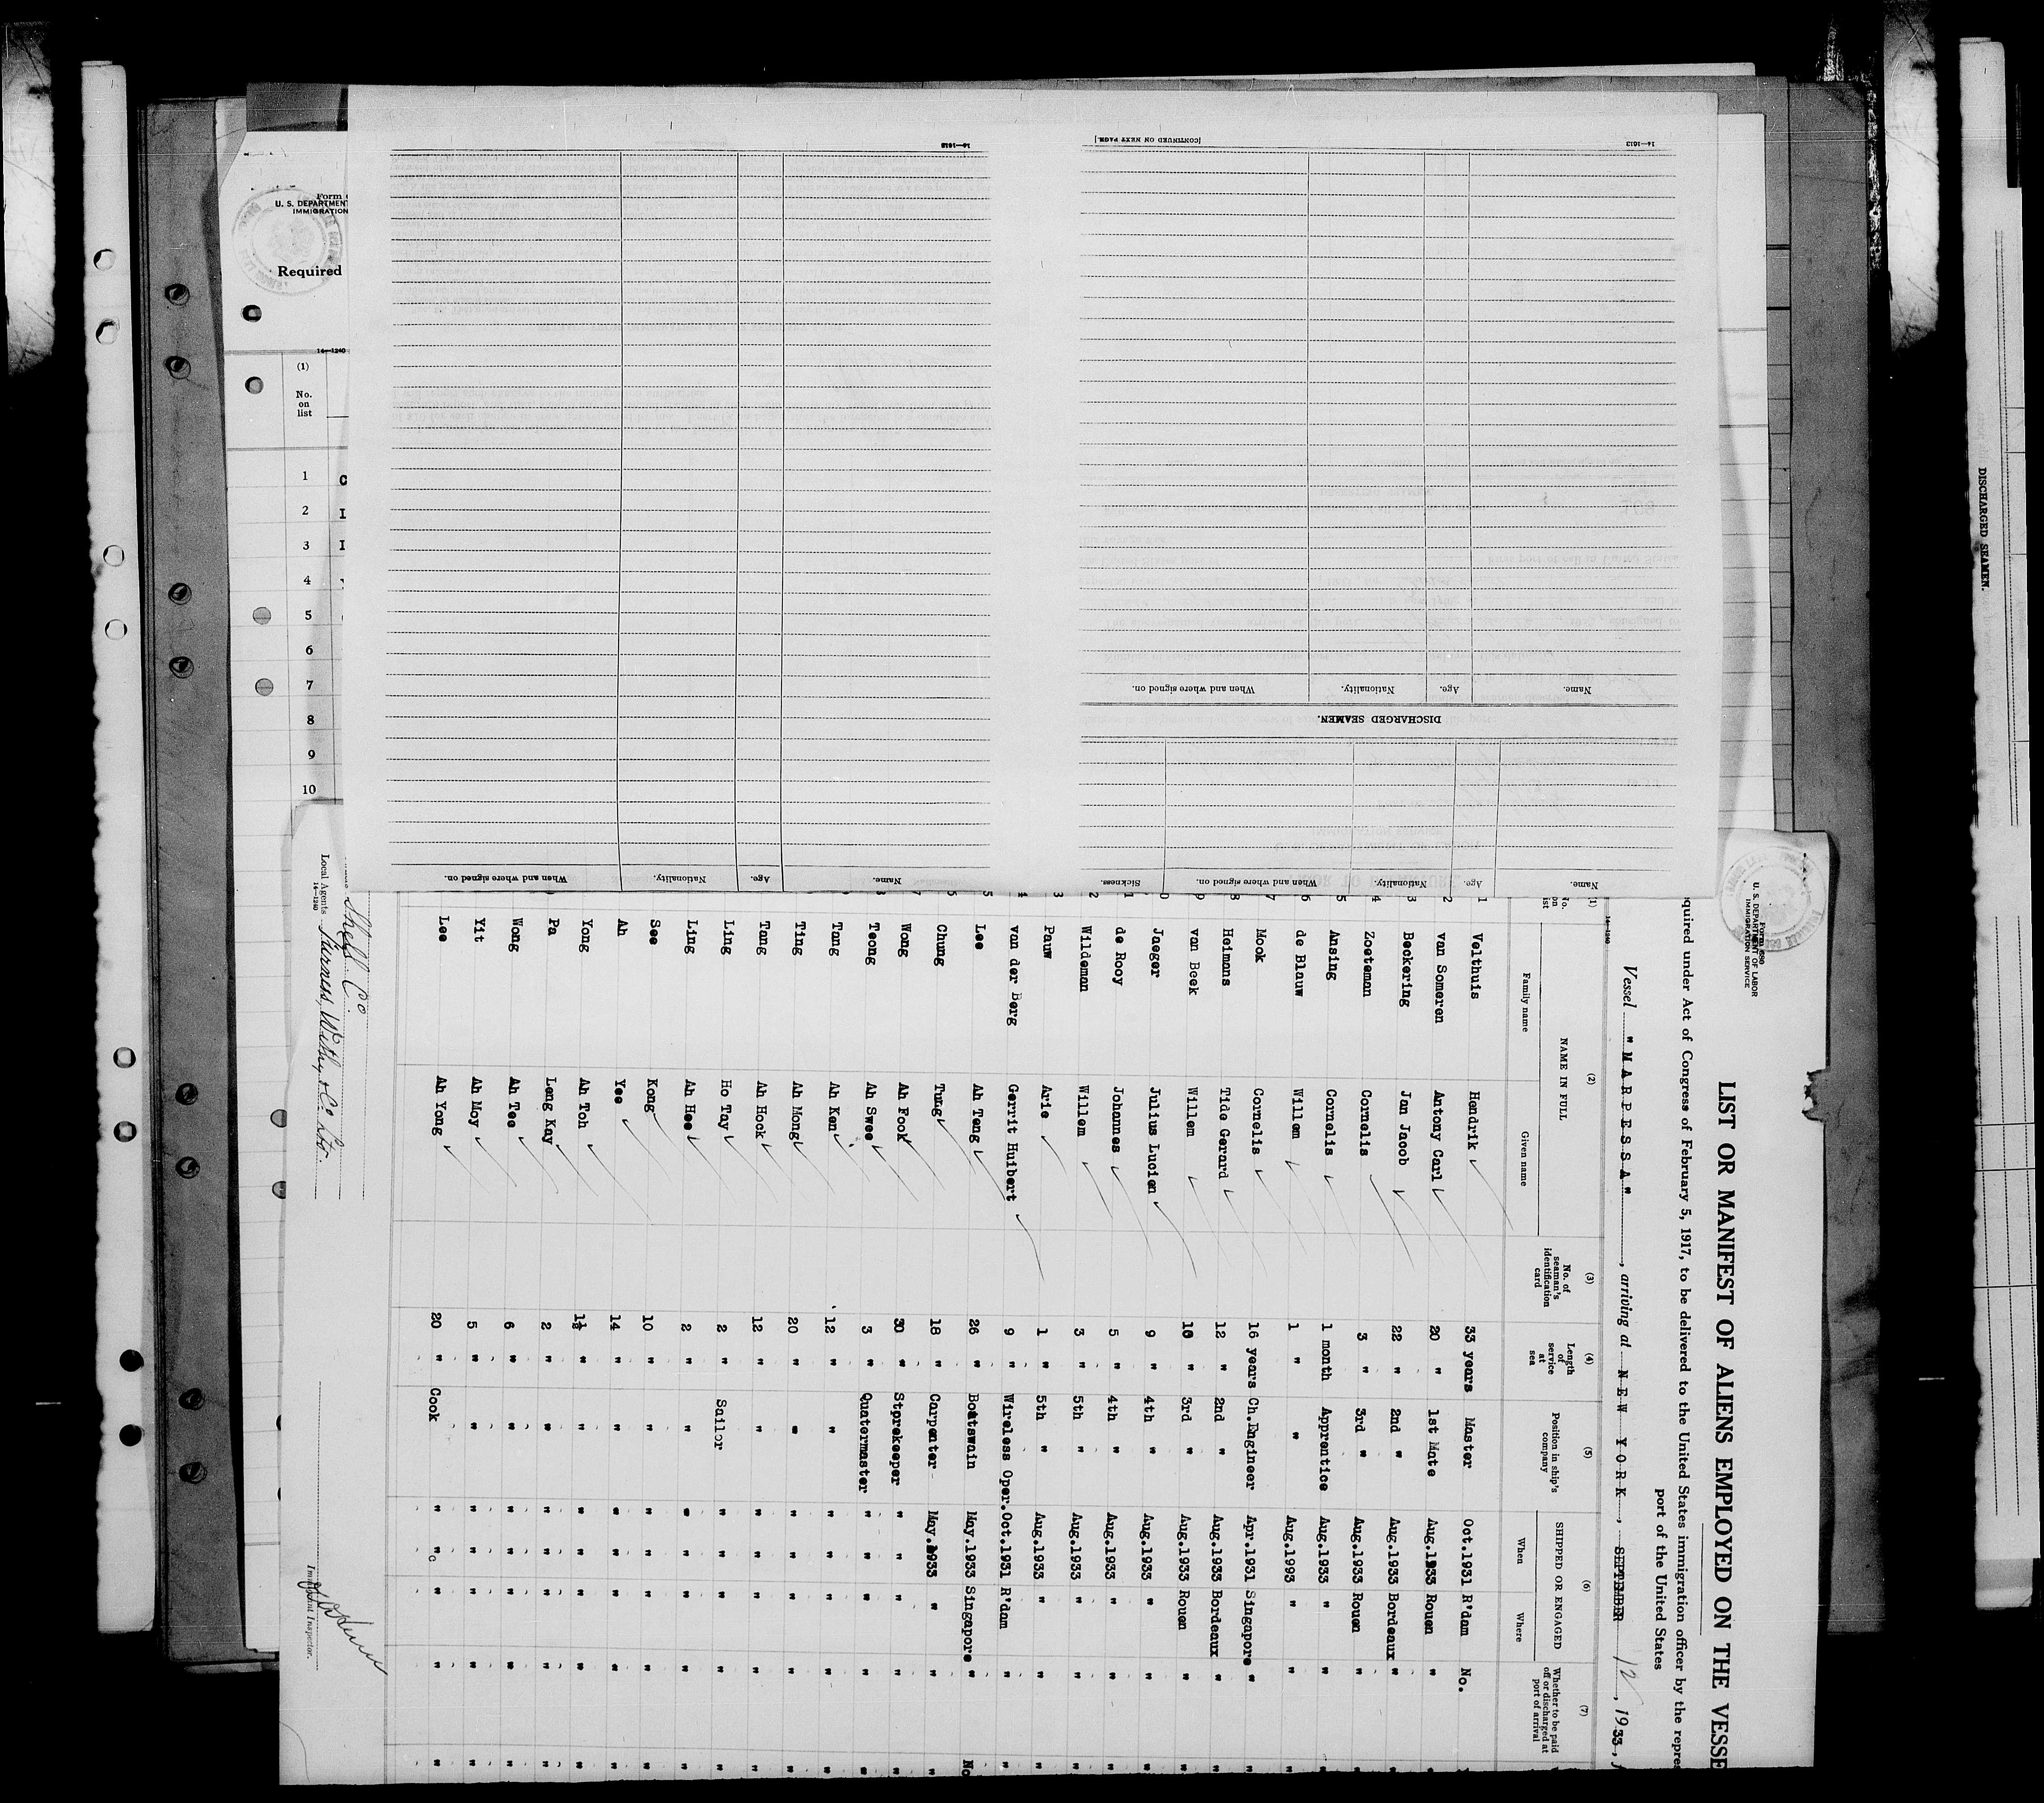 LIST OR MANIFEST OF ALIENS EMPLOYED ON THE VESSE
Form 680
U. S. DEPARTMENT OF LABOR
IMMIGRATION SERVICE
quired under Act of Congress of February 5, 1917, to be delivered to the United States immigration officer by the repres
port of the United States
Vessel "MARPESSA", arriving at NEW YORK, SEPTEMBER 12, 1933,
14—1240
(1) (2) (3) (4) (5) (6) (7)
NAME IN FULL
Family name Given name
No. of seaman's identification card
Length of service at sea
Position in ship's company
SHIPPED OR ENGAGED
When Where
Whether to be paid off or discharged at port of arrival
1 Velthuis Hendrik 33 years Master Oct.1931 R'dam No.
2 van Someren Antony Carl 20 " 1st Mate Aug.1933 Rouen "
3 Beckering Jan Jacob 22 " 2nd " Aug.1933 Bordeaux "
4 Zoeteman Cornelis 3 " 3rd " Aug.1933 Rouen "
5 Ansing Cornelis 1 month Apprentice Aug.1933 " "
6 de Blauw Willem 1 " " Aug.1993 " "
7 Mook Cornelis 16 years Ch.Engineer Apr.1931 Singapore "
8 Heimans Tide Gerard 12 " 2nd " Aug.1933 Bordeaux "
9 van Beek Willem 10 " 3rd " Aug.1933 Rouen "
0 Jaeger Julius Lucien 9 " 4th " Aug.1933 " "
1 de Rooy Johannes 5 " 4th " Aug.1933 " "
2 Wildeman Willem 3 " 5th " Aug.1933 " "
3 Pauw Arie 1 " 5th " Aug.1933 " "
4 van der Berg Gerrit Huibert 9 " Wireless Oper. Oct.1931 R'dam "
5 Lee Ah Teng 26 " Boatswain May.1933 Singapore " No
Chung Tung 18 " Carpenter May.1933 " "
Wong Ah Fook 30 " Storekeeper " " " "
Teong Ah Swee 3 " Quatermaster " " " "
Tang Ah Ken 12 " " " " " "
Ting Ah Mong 20 " " " " " "
Tang Ah Hock 12 " " " " " "
Ling Ho Tay 2 " Sailor " " " "
Ling Ah Hee 2 " " " " " "
See Kong 10 " " " " " "
Ah Yee 14 " " " " " "
Yong Ah Toh 1½ " " " " " "
Pa Leng Kay 2 " " " " " "
Wong Ah Tee 6 " " " " " "
Yit Ah Moy 5 " " " " " "
Lee Ah Yong 20 " Cook " " " "
Shell Co.
Local Agents Furness, Withy & Co. Ltd.
14—1240
Immigrant Inspector.
16—1613
[CONTINUED ON NEXT PAGE.]
Name. Age. Nationality. When and where signed on.
DISCHARGED SEAMEN.
Name. Age. Nationality. When and where signed on. Sickness.
Name. Age. Nationality. When and where signed on.
Form
U. S. DEPARTMENT
IMMIGRATION
Required
14—1240
(1)
No.
on
list
1
2
3
4
5
6
7
8
9
10
DISCHARGED SEAMEN.